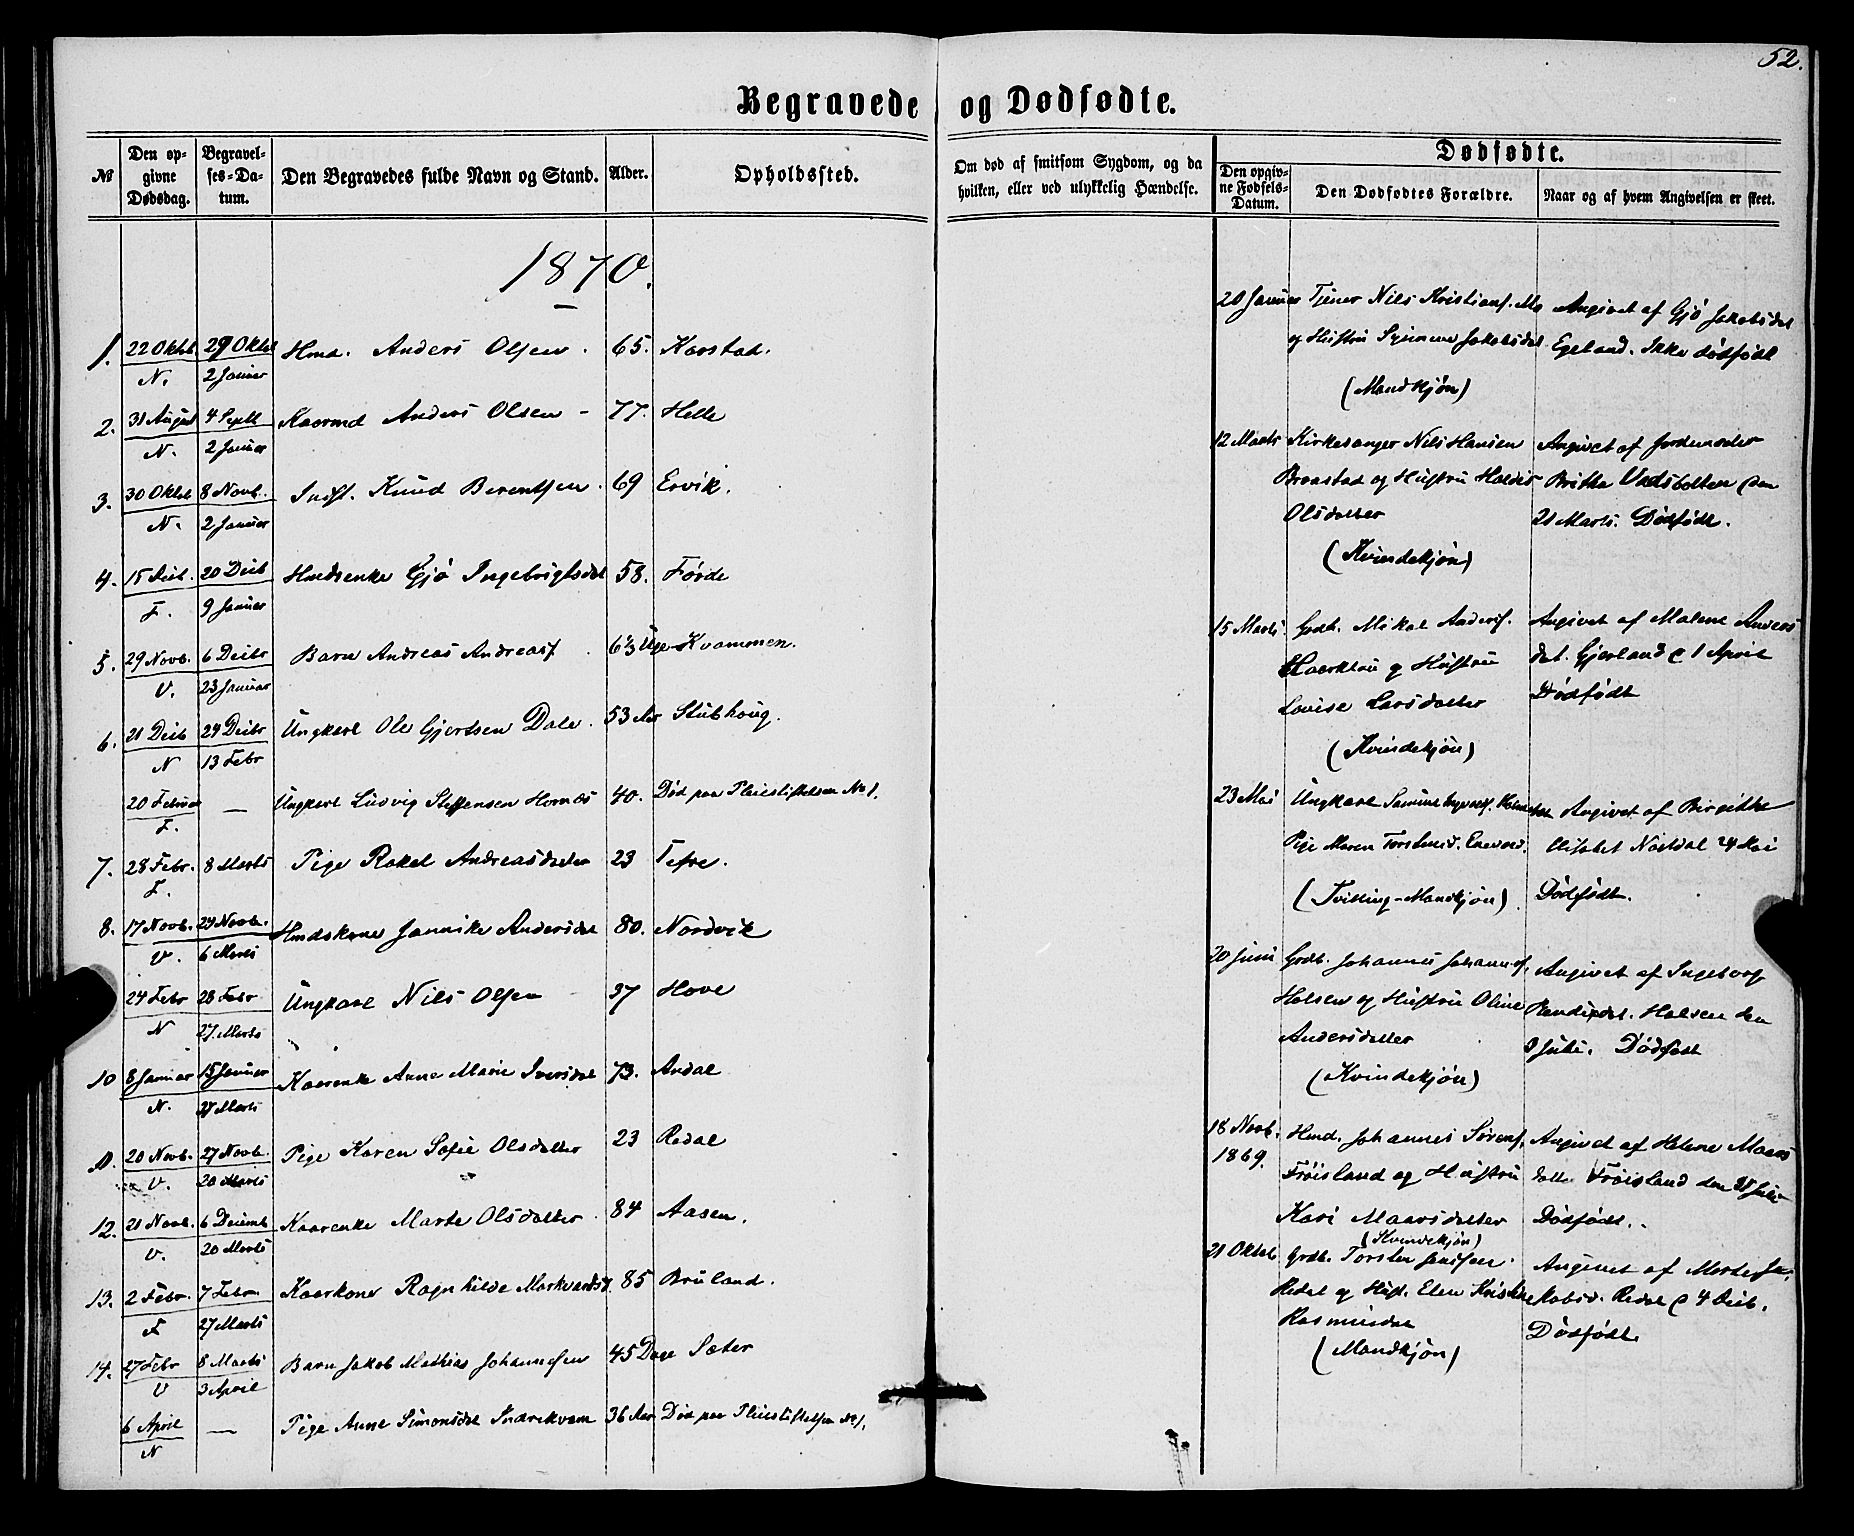 52.
Begravede og Dødfødte.
№
Den op-
givne
Dødsdag.
Begravel-
ses-Da-
tum.
Den Begravedes fulde Navn og Stand.
Alder.
Opholdssted.
Om død af smitsom Sygdom, og da
hvilken, eller ved ulykkelig Hændelse.
Dødfødte.
Den opgiv-
ne Fødsels-
Datum.
Den Dødfødtes Forældre.
Naar og af hvem Angivelsen er skeet.
1870.
1. 22 Oktbr 29 Oktbr Hmd. Anders Olsen. 65. Karstad.
N. 2 Januar
2. 31 August 4 Septb Kaarmd Anders Olsen - 77. Helle
N. 2 Januar
3. 30 Oktbr 8 Novb. Indst. Knud Berentsen. 69 Ervik.
N. 2 Januar
4. 15 20 Deib Hmdsenke Gjø Ingebrigtsdat 58. Förde
F. 9 Januar
5. 29 Novb. 6 Deibr Barn Andreas Andreasf. 6½ Uge Kvammen.
V. 23 Januar
6. 21 Deib 29 Deibr Ungkarl Ole Gjertsen Dale. 53 Aar Stubhoug.
N 13 Febr
20 Februar — Ungkarl Ludvig Steffensen Hornæs 40. Død paa Pleiestiftelsen No 1.
F.
7. 28 Febr. 8 Marts Pige Rakel Andreasdatter 23 Tefre.
F.
8. 17 Novb. 24 Novb. Hmdskone Jannike Andersdat 80. Nordvik
V. 6 Marts
24 Febr 28 Febr Ungkarl Nils Olsen 37 Hove
N 27 Marts
10 8 Januar 15 Januar Kaarenke Anne Marie Iversdat 73. Andal
N. 27 Marts
11. 20 Novb. 27 Novb. Pige Karen Sofie Olsdatter 23 Redal
V. 20 Marts
12. 21 Novb. 6 Decemb Kaarenke Marte Olsdatter. 84 Aasen.
V. 20 Marts
13. 2 Febr. 7 Febr. Kaarkone Ragnhilde Markvardsd. 85 Bruland.
F 27 Marts
14. 27 Febr 8 Marts Barn Jakob Mathias Johannesen 45 Dage Sæter
V 3 April
6 April — Pige Anne Simonsdat Indrekvam 36 Aar Død paa Pleiestiftelsen No 1.
N
20 Januar Tjener Nils Kristians. Mo Angivet af Gjø Jakobsdat
og Hustru Jakobsdat Egeland. Ikke dødfødt
(Mandkjøn)
12 Marts Kirkesanger Nils Hansen Angivet af Jordemoder
Braastad og Hustru Haldis Britha Vadsbotten den
Olsdatter 21 Marts. Dødfødt.
(Kvindekjøn)
15 Marts Grdb. Mikal Andersf. Angivet af Malene Anders
og Hustru dat. Gjerland d 1 April
Lovise Larsdatter Dødfødt
(Kvindekjøn)
23 Mai Ungkarl Angivet af Birgithe
Pige Maren Torstensd. Elisabet Nostdal 24 Mai
(Tvilling-Mandkjøn). Dødfødt.
20 Juni Grdb. Johannes Johannesf. Angivet af Ingeborg
Halsen og Hustru Oline Halsen den
Andersdatter 3 Juli. Dødfødt
(Kvindekjøn)
18 Novb. Hmd. Johannes Sørens. Angivet af Helene Maars
1869. Frøisland og Hustru datter Frøisland den Juli
Kari Maarsdatter Dødfødt.
(Kvindekjøn)
21 Oktob Grdb. Torsten Jensen. Angivet af Marte Ja-
Redal og Hust. Elen Kristine kobsd. Redal d 4 Deib.
Rasmusdat Dødfødt
(Mandkjøn)